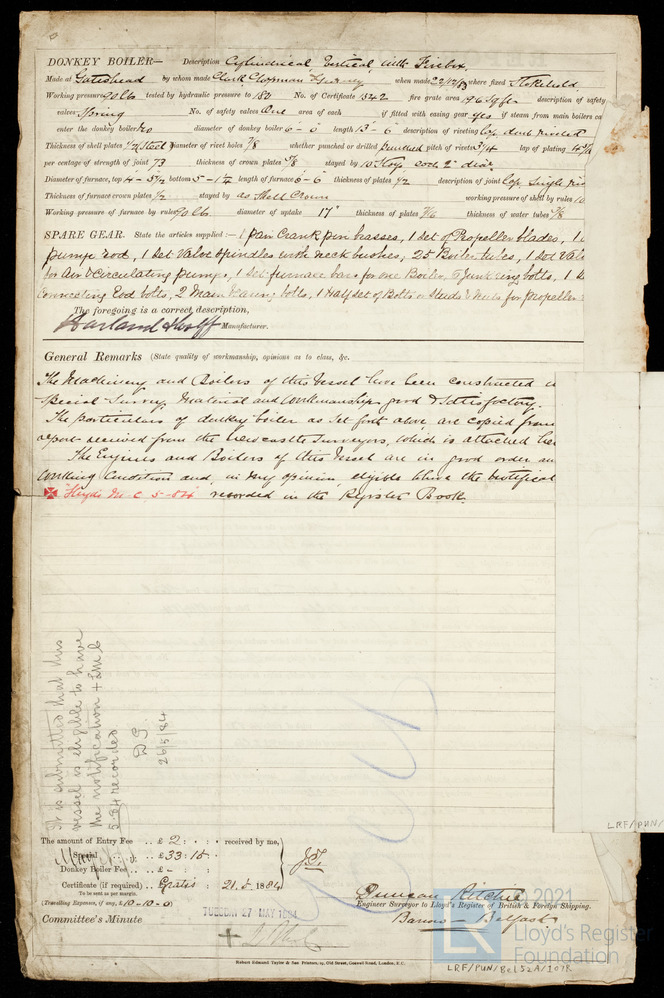 DONKEY BOILER— Description Cylindrical Vertical with Firebox
Made at Gateshead by whom made Clark Chapman Gurney when made 22/12/83 where fixed Stokehold
Working pressure 90 lbs tested by hydraulic pressure to 180 No. of Certificate 1342 fire grate area 19.6 Sq ft description of safety
valves Spring No. of safety valves One area of each if fitted with easing gear yes if steam from main boilers ca
enter the donkey boiler No diameter of donkey boiler 6-6 length 13-6 description of riveting Lap double riveted
Thickness of shell plates 1/2 Steel diameter of rivet holes 7/8 whether punched or drilled punched pitch of rivets 3 1/4 lap of plating
per centage of strength of joint 73 thickness of crown plates 5/8 stayed by 10 Stays each 2" diar
Diameter of furnace, top 4-5 1/2 bottom 5-1 1/4 length of furnace 5-6 thickness of plates 1/2 description of joint Lap Single
Thickness of furnace crown plates 1/2 stayed by as Shell Crown working pressure of shell by rules
Working pressure of furnace by rules 90 lbs diameter of uptake 17" thickness of plates 7/16 thickness of water tubes 3/8
SPARE GEAR. State the articles supplied:— 1 pair Crank pin brasses, 1 set of Propeller blades,
pump rod, 1 set Valve Spindles with neck bushes, 25 Boiler tubes, 1 set Val
for Air & Circulating pumps, 1 set furnace bars for one Boiler, 6 Junk ring bolts, 1
Connecting rod bolts, 2 Main bearing bolts, 1 Half set of Bolts or Studs & Nuts for propeller
The foregoing is a correct description,
Harland & Wolff Manufacturer.
General Remarks (State quality of workmanship, opinions as to class, &c.
The Machinery and Boilers of this Vessel have been constructed u
Special Survey, Material and Workmanship good & Satisfactory.
The particulars of donkey boiler as set forth above, are copied from
report received from the Newcastle Surveyors, which is attached her
The Engines and Boilers of this Vessel are in good order an
Working Condition and, in my opinion, eligible to have the notificat
Lloyd's M.C. 5-84 recorded in the Register Book.
It is submitted that this
vessel is eligible to have
the notification + LMC
5.84 recorded
26/5/84
The amount of Entry Fee .. £ 2 : . : . received by me,
Special .. £ 33 : 18 :
Donkey Boiler Fee .. £ - :
Certificate (if required) .. Gratis : 21.5.1884
To be sent as per margin.
(Travelling Expenses, if any, £ 10-10-0)
Duncan Ritchie
Engineer Surveyor to Lloyd's Register of British & Foreign Shipping.
Barrow - Belfast
Committee's Minute TUESDAY 27 MAY 1884
Robert Edmund Taylor & Son Printers, 19, Old Street, Goswell Road, London, E.C.
LRF/PUN/
2021
Lloyd's Register
Foundation
LRF/PUN/Bel52A/107R